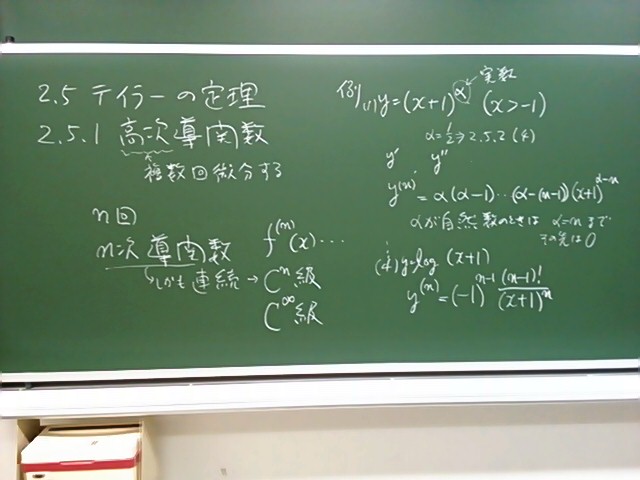 2.5 テイラーの定理
2.5.1 高次導関数
複数回微分する
n回
n次導関数 f⁽ⁿ⁾(x)…
しかも連続→Cⁿ級
C^∞級
例 (1) y=(x+1)^α (x>-1)
実数
α=1/2→2.5.2(4)
y' y''
y⁽ⁿ⁾=α(α-1)‥(α-(n-1))(x+1)^(α-n)
αが自然数のときは α=nまで
その先は0
(4) y=log(x+1)
y⁽ⁿ⁾=(-1)^(n-1) (n-1)!/(x+1)^n